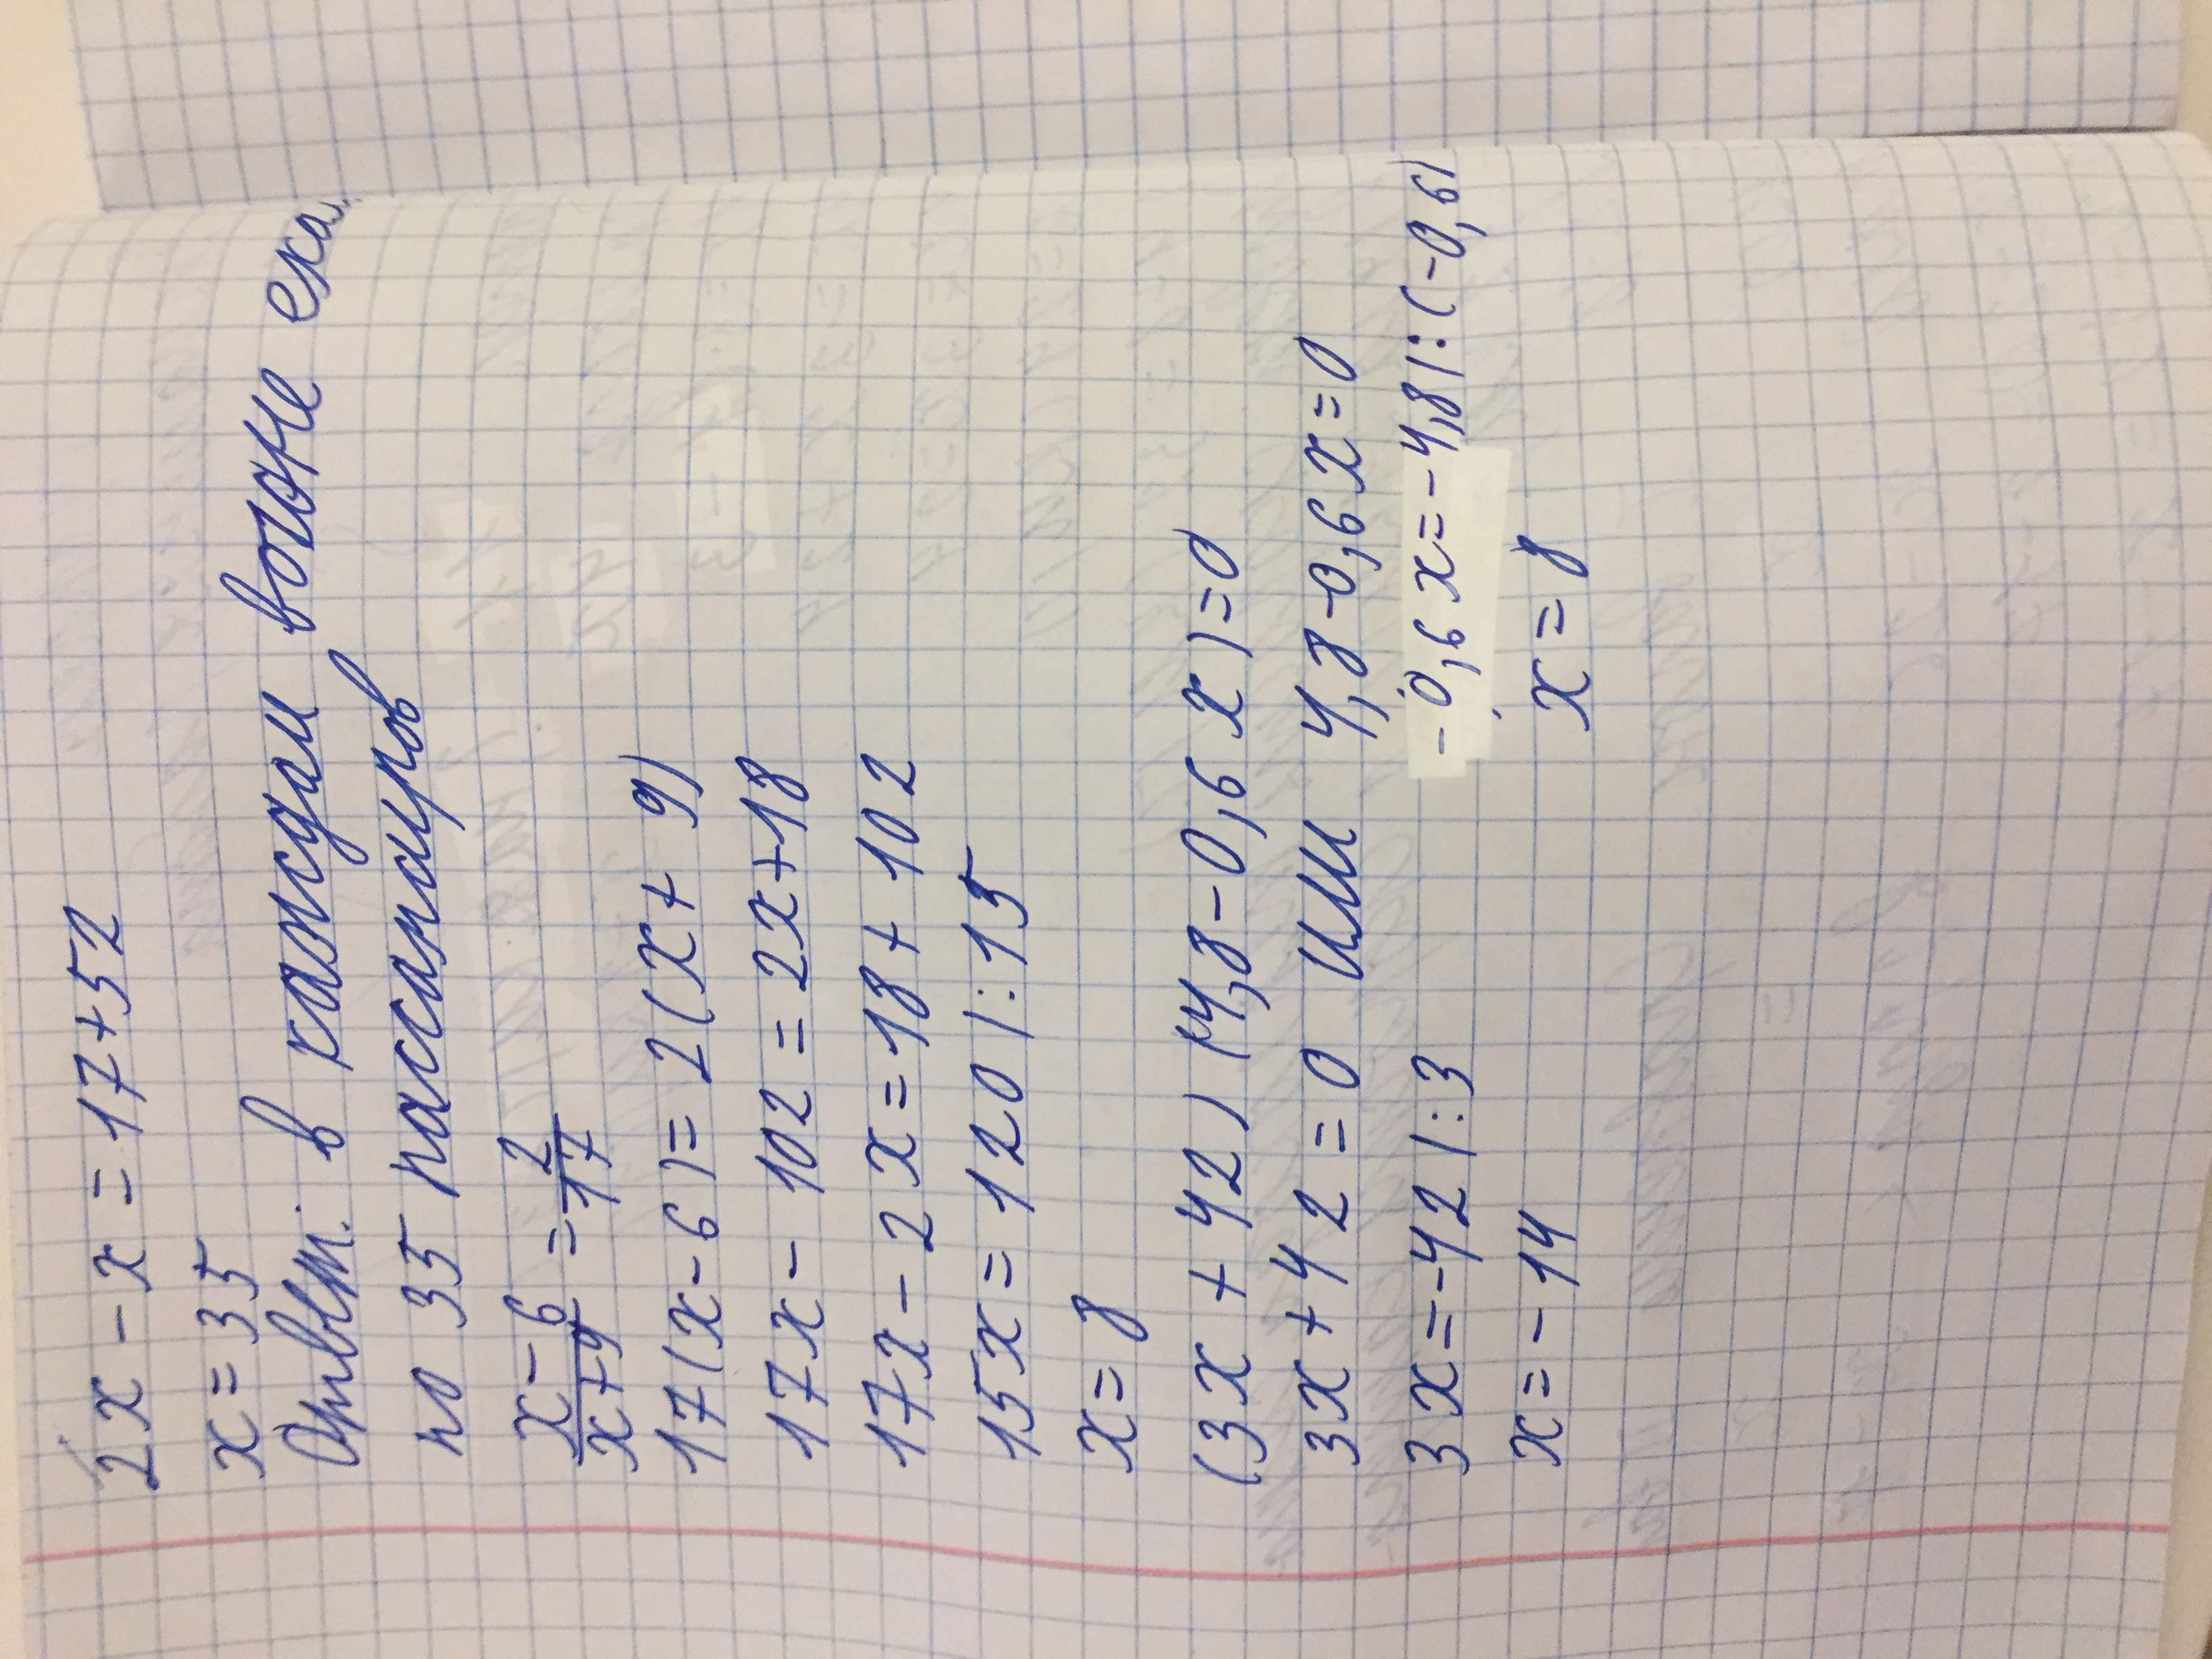 2x - x = 17+52
x = 35
Ответ: в каждом вагоне ехал
по 35 пассажиров
x-6/x+9 = 2/17
17(x-6)= 2(x+ 9)
17x- 102 = 2x+18
17x- 2x=18+102
15x= 120 |:15
x= 8
(3x + 42) (4,8-0,6x)=0
3x+42=0 или 4,8-0,6x=0
3x=-42 |:3 -0,6x=-4,8|:(-0,6)
x=-14 x=8